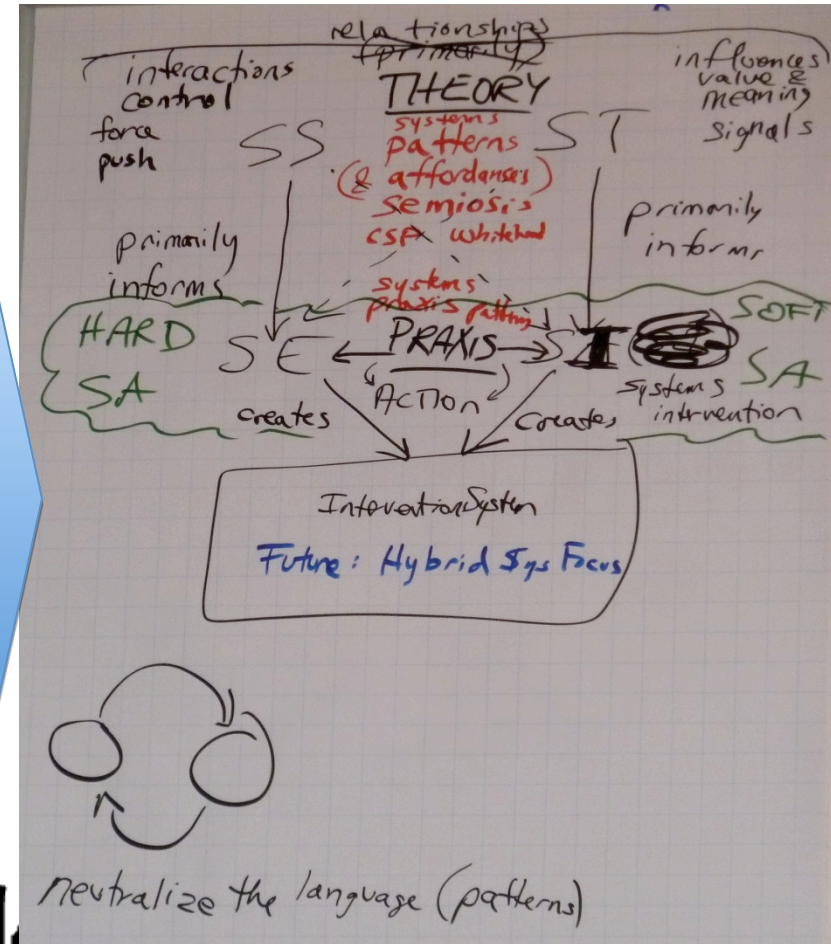 relationships
(primarily)
interactions
control
force
push
THEORY
influences
value &
meaning
signals
SS
systems
patterns
(& affordances)
semiosis
CSP Whitehead
ST
primarily
informs
primarily
informs
systems
praxis pattern
HARD
SA
SE
PRAXIS
Action
SI
systems
intervention
SOFT
SA
creates
creates
Intervention System
Future: Hybrid Sys Focus
neutralize the language (patterns)